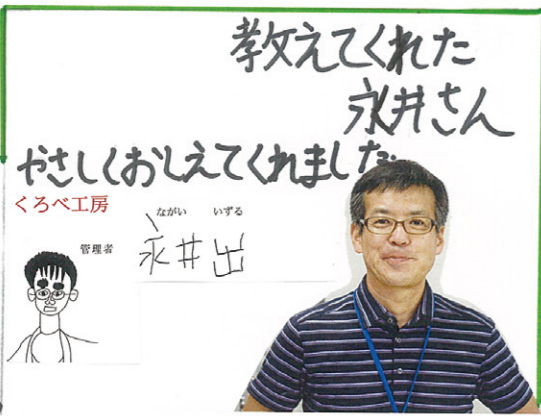 教えてくれた
永井さん
やさしくおしえてくれました。
くろべ工房
ながい いずる
管理者
永井出